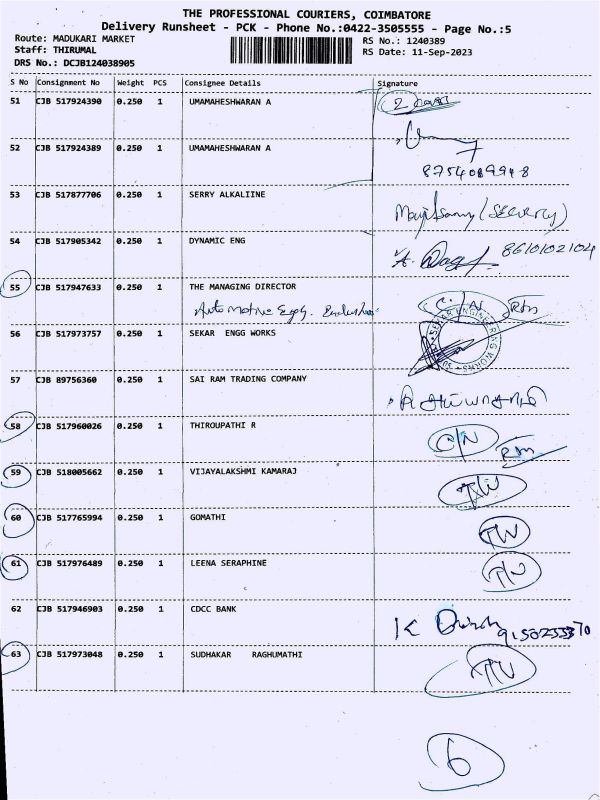 THE PROFESSIONAL COURIERS, COIMBATORE
Delivery Runsheet - PCK - Phone No.:0422-3505555 - Page No.:5
Route: MADUKARI MARKET
RS No.: 1240389
Staff: THIRUMAL
RS Date: 11-Sep-2023
DRS No.: DCJB124038905
S No Consignment No Weight PCS Consignee Details Signature
51 CJB 517924390 0.250 1 UMAMAHESHWARAN A
52 CJB 517924389 0.250 1 UMAMAHESHWARAN A
53 CJB 517877706 0.250 1 SERRY ALKALIINE
54 CJB 517905342 0.250 1 DYNAMIC ENG 8610102104
55 CJB 517947633 0.250 1 THE MANAGING DIRECTOR
Automotive Engg.
56 CJB 517973757 0.250 1 SEKAR ENGG WORKS
SEKAR ENGINEERING WORKS
57 CJB 89756360 0.250 1 SAI RAM TRADING COMPANY
58 CJB 517960026 0.250 1 THIROUPATHI R
59 CJB 518005662 0.250 1 VIJAYALAKSHMI KAMARAJ
60 CJB 517765994 0.250 1 GOMATHI
61 CJB 517976489 0.250 1 LEENA SERAPHINE
62 CJB 517946903 0.250 1 CDCC BANK
63 CJB 517973048 0.250 1 SUDHAKAR RAGHUMATHI
6